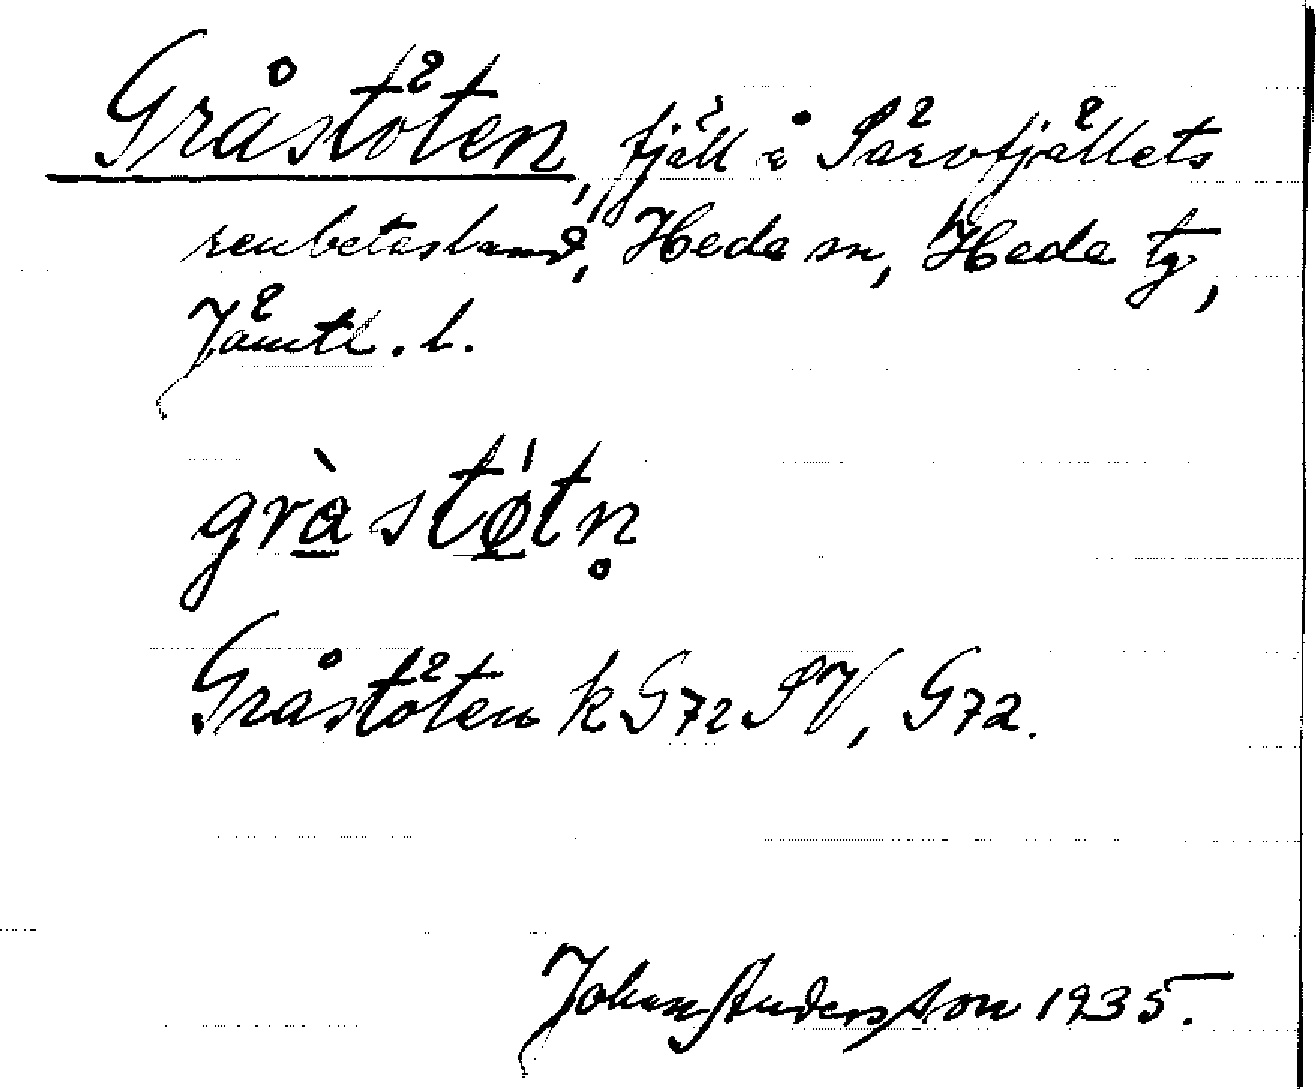 Gråstöten, fjäll i Särvfjällets
renbetesland, Hede sn, Hede tg,
Jämtl. l.
gràstø̀tn̥
Gråstöten k G72 SV, G72.
Johan Andersson 1935.